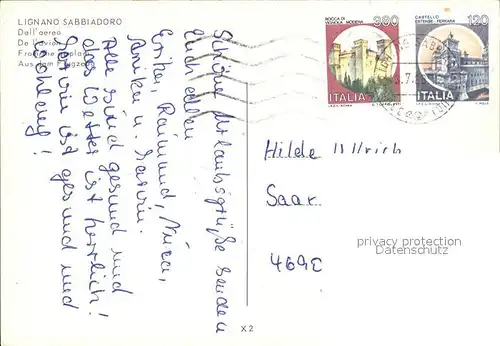 LIGNANO SABBIADORO
Dall'aereo
De l'avion
From the airplane
Aus dem Flugzeug
Schöne Urlaubsgrüße senden
Euch allen
Erika, Raimund,
Anika u.
Alle sind gesund und
das Wetter ist herrlich!
ist gesund und
ROCCA DI
380
ITALIA
CASTELLO
ESTENSE - FERRARA
120
ITALIA
Hilde Ullrich
Saar
privacy protection
Datenschutz
X 2